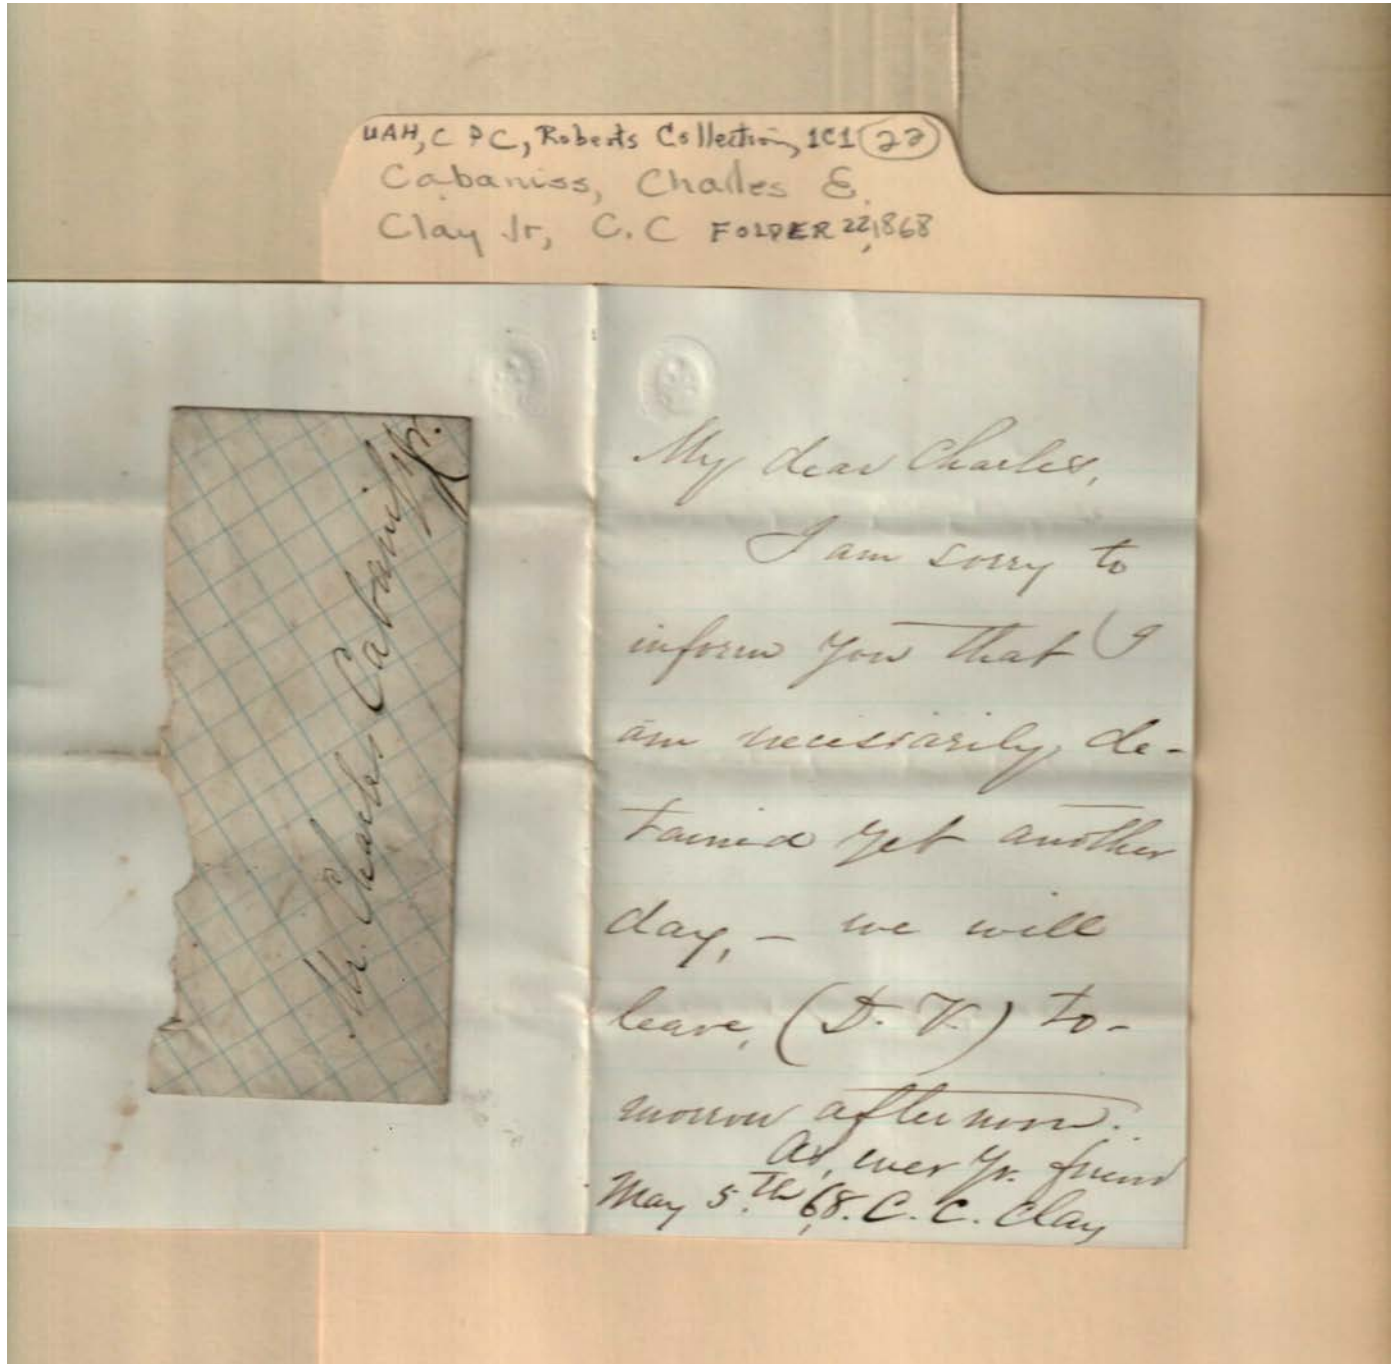 UAH, C P C, Roberts Collection, 1C1 (22)
Cabaniss, Charles &
Clay Jr, C.C FOLDER 22, 1868
Mr. Charles Cabaniss Jr.
My dear Charles,
I am sorry to
inform you that I
am necessarily de-
tained yet another
day, - we will
leave, (D. V.) to-
morrow afternoon.
As, ever yr. friend
May 5.th 68. C. C. Clay